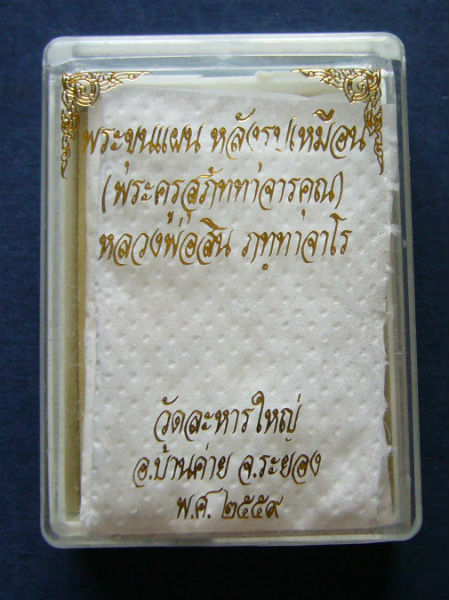 พระขุนแผน หลังรูปเหมือน
(พระครูสุภัททาจารคุณ)
หลวงพ่อสิน ภทฺทาจาโร
วัดละหารใหญ่
อ.บ้านค่าย จ.ระยอง
พ.ศ. ๒๕๕๙